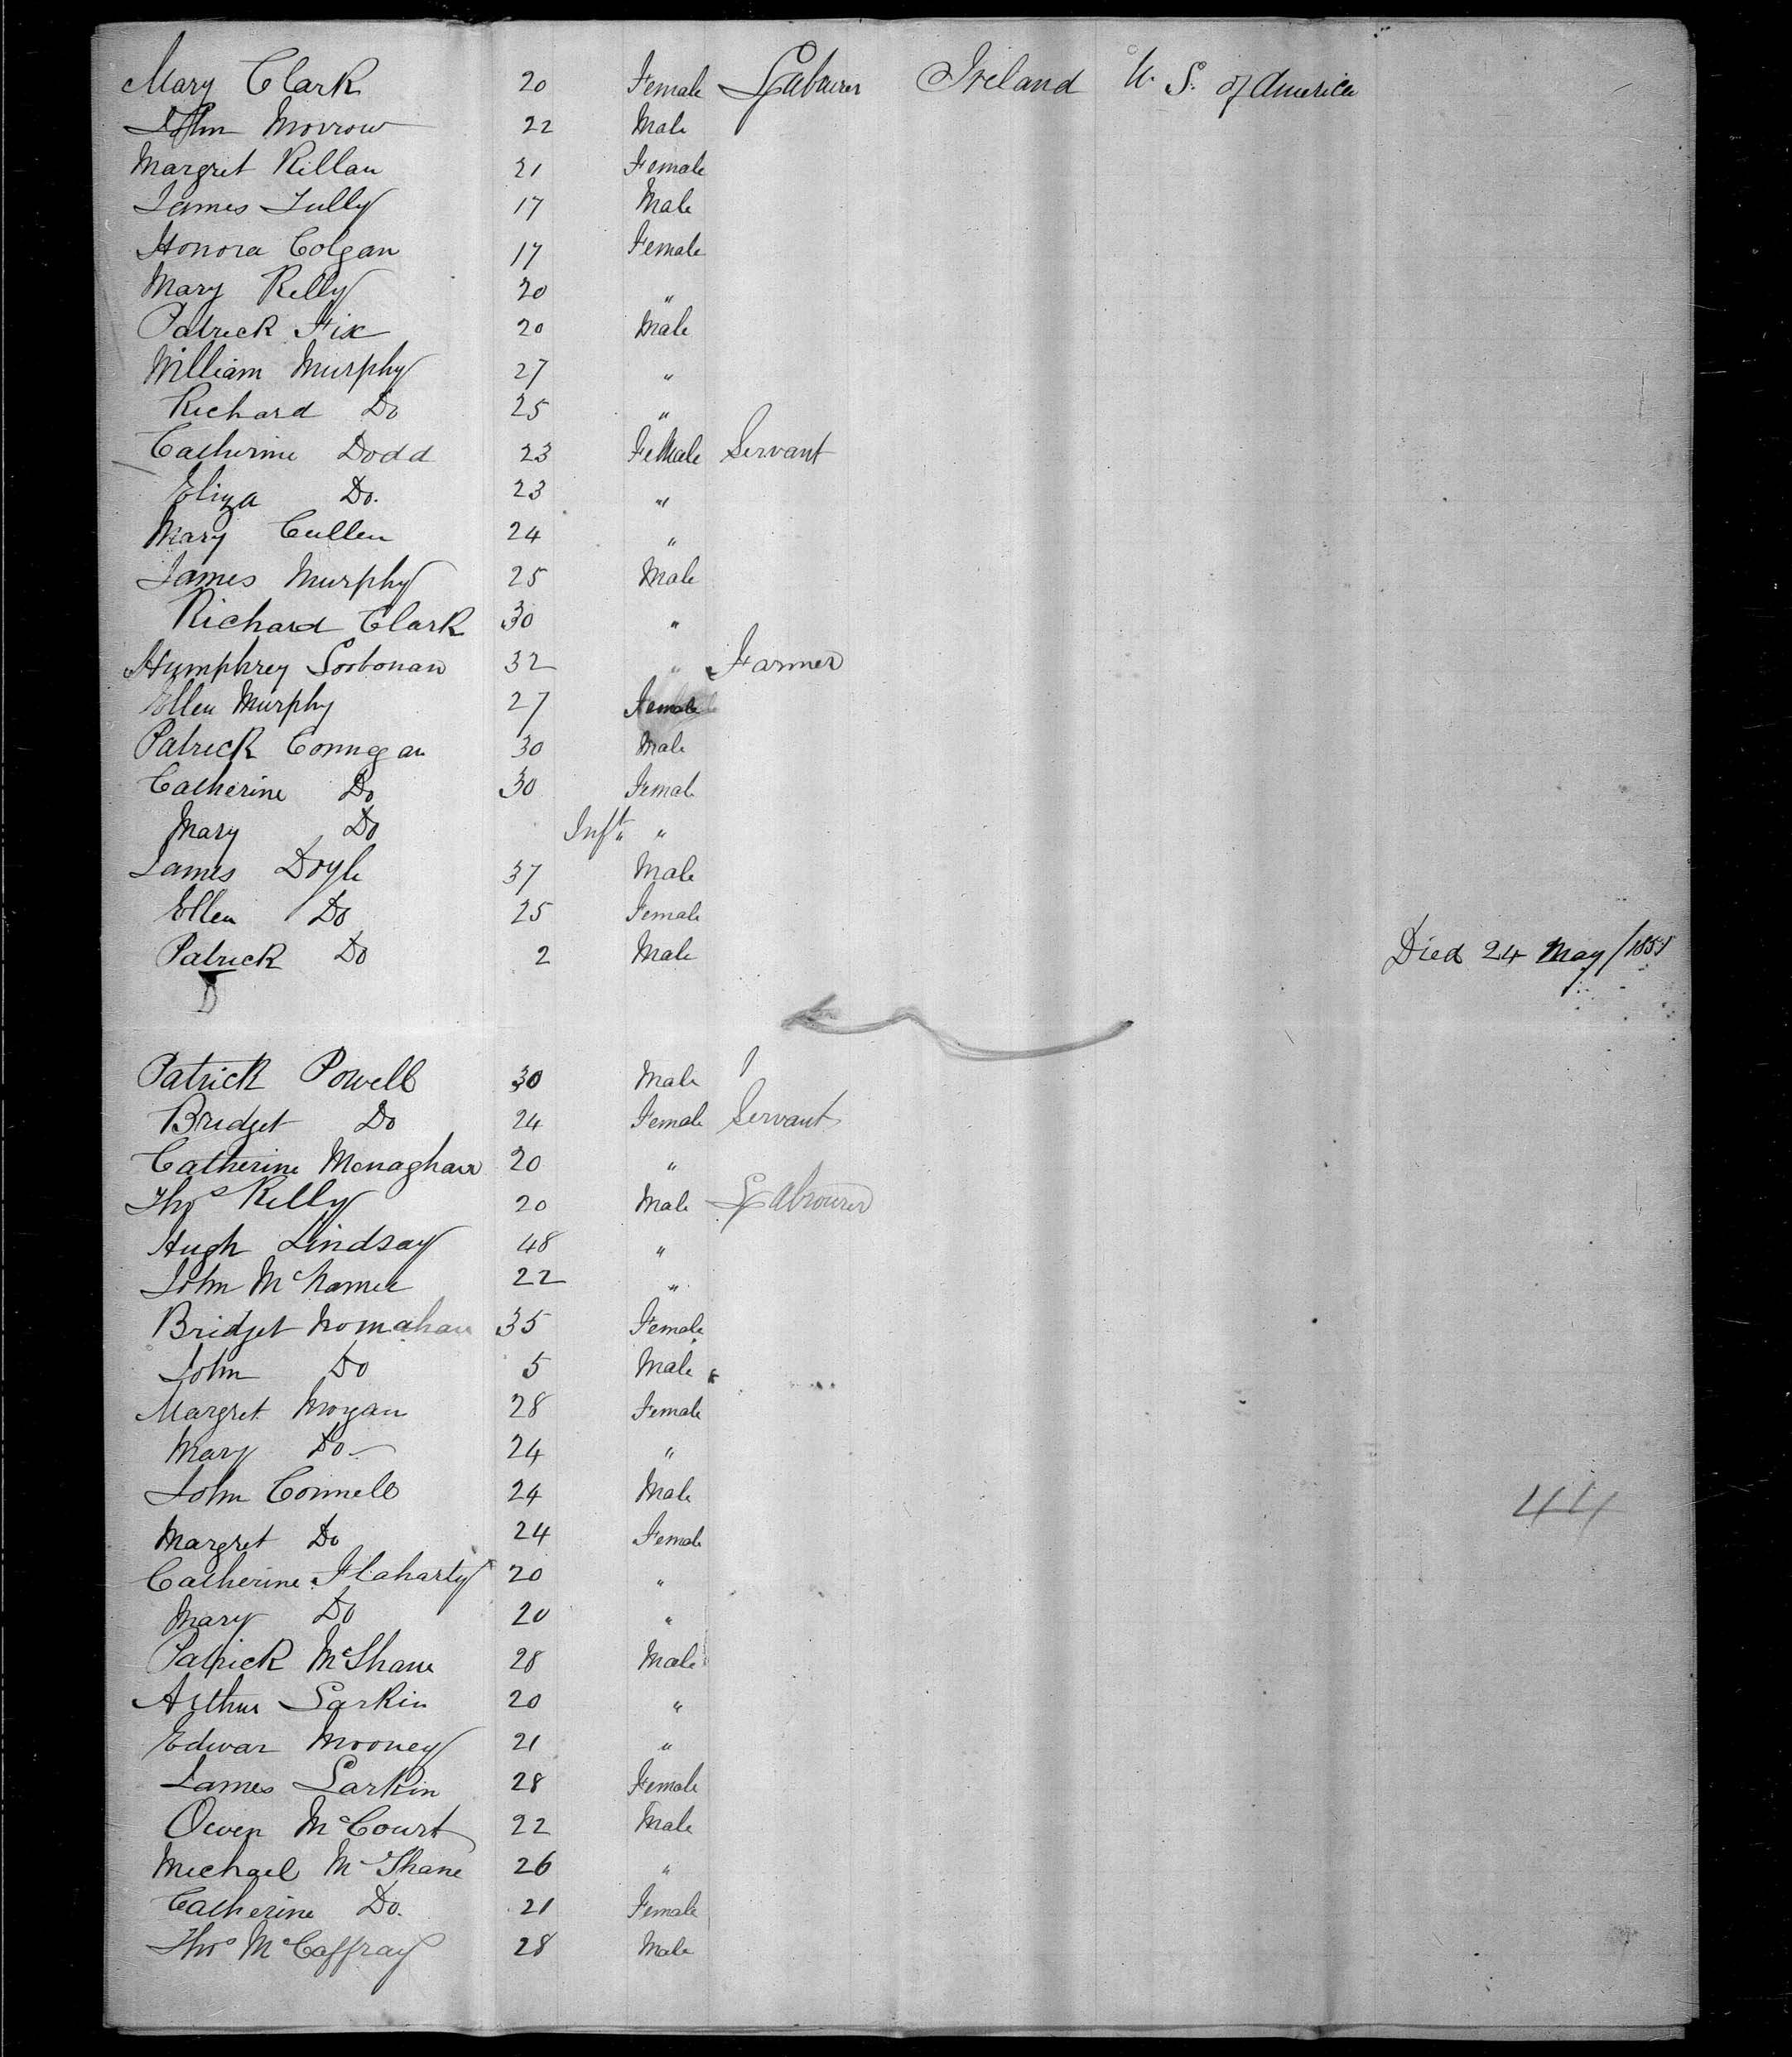 Mary Clark 20 Female Labourer Ireland U. S. of America
John Morrow 22 Male
Margret Killan 21 Female
James Tully 17 Male
Honora Colgan 17 Female
Mary Kelly 20 "
Patrick Fix 20 Male
William Murphy 27 "
Richard Do 25 "
Catherine Dodd 23 Female Servant
Eliza Do. 23 "
Mary Cullen 24 "
James Murphy 25 Male
Richard Clark 30 "
Humphrey 32 " Farmer
Ellen Murphy 27 Female
Patrick 30 Male
Catherine Do 30 Femal
Mary Do Inft "
James Doyle 37 Male
Ellen Do 25 Female
Patrick Do 2 Male Died 24 May/1851
D
Patrick Powell 30 Male
Bridget Do 24 Female Servant
Catherine Monaghan 20 "
Thos Kelly 20 Male Labrourer
Hugh Lindsay 48 "
John McNamee 22 "
Bridget 35 Female
John Do 5 Male
Margret Morgan 28 Female
Mary Do 24 "
John Connell 24 Male
Margret Do 24 Female
Catherine Flaharty 20 "
Mary Do 20 "
Patrick McShane 28 Male
Arthur Larkin 20 "
Edwar Mooney 21 "
James Larkin 28 Female
Owen McCourt 22 Male
Michael McShane 26 "
Catherine Do. 21 Female
Thos McCaffray 28 Male
44